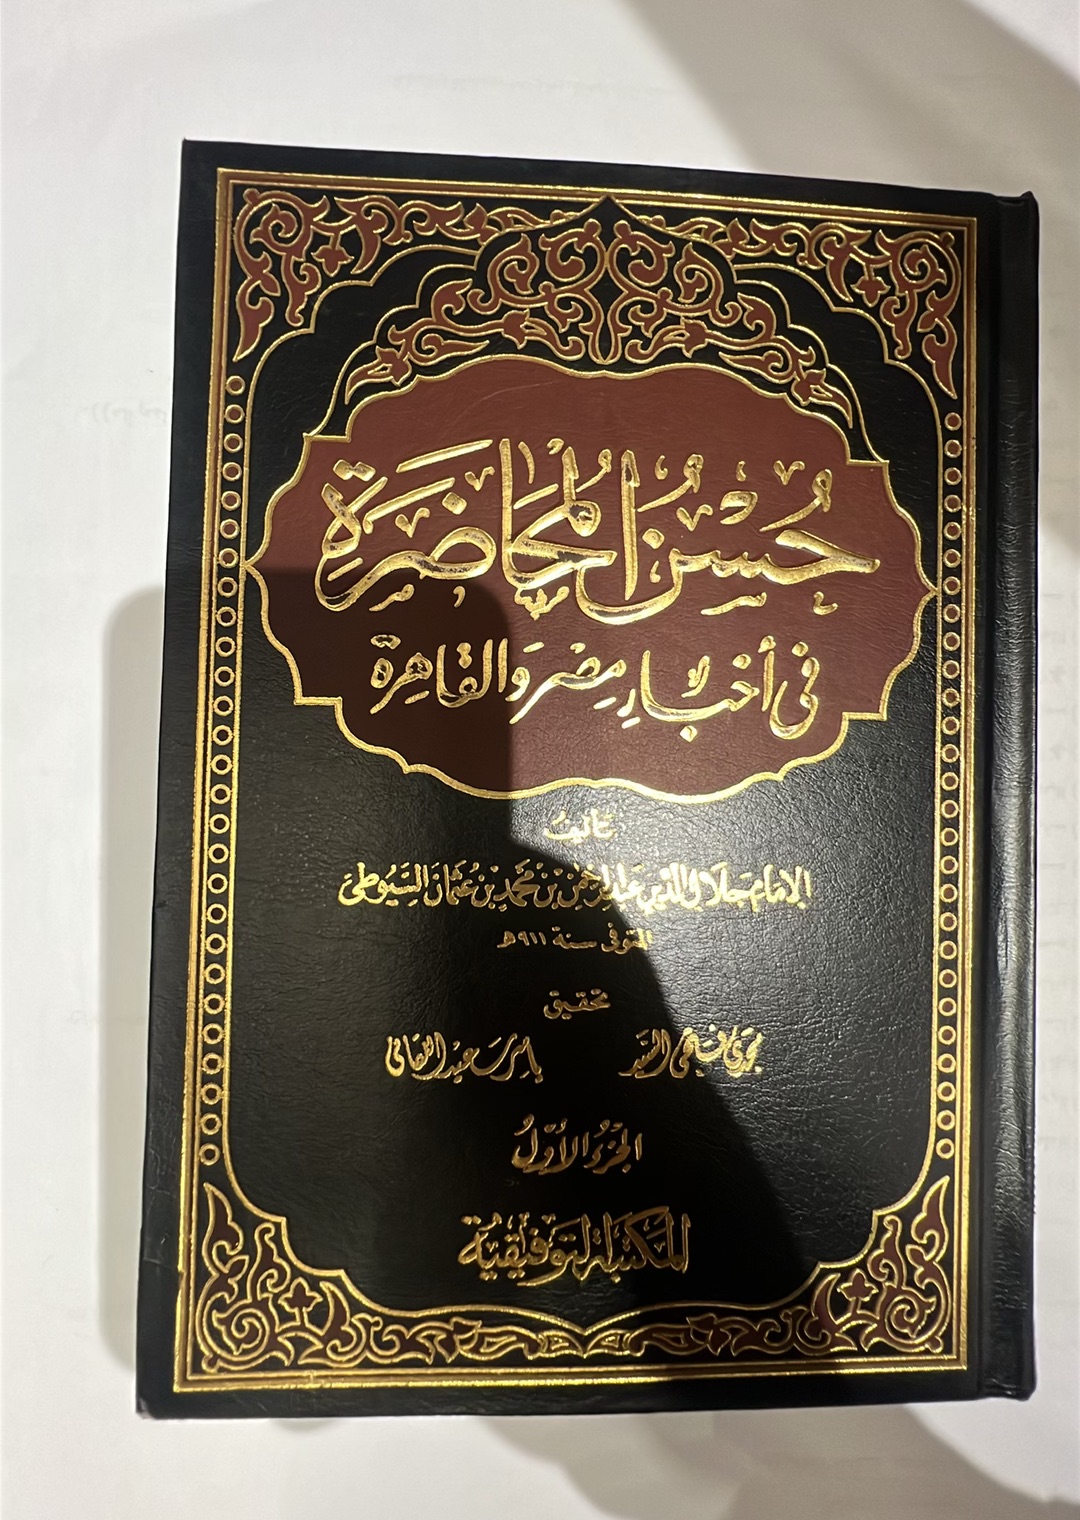 حُسْنُ الْمُحَاضَرَةِ
فِي أَخْبَارِ مِصْرَ وَالْقَاهِرَةِ
تأليف
الإمام جلال الدين عبد الرحمن بن محمد بن عثمان السيوطي
المتوفى سنة ٩١١هـ
تحقيق
مجدي فتحي السيد ياسر سعيد
الجزء الأول
المكتبة التوفيقية